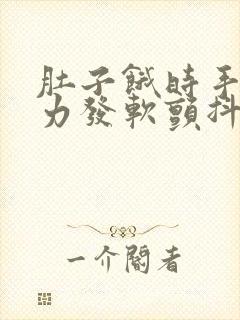 肚子餓時手
力發軟顫抖
一介閣者